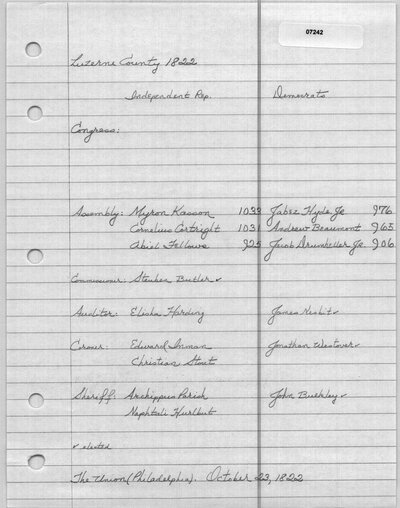 07242
Luzerne County 1822
Independent Rep. Democrats
Congress:
Assembly: Myron Kasson 1033 Jabez Hyde Jr 976
Cornelius Cortright 1031 Andrew Beaumont 965
Abiel Fellows 925 Jacob Drumheller Jr. 906
Commissioner: Steuben Butler ✓
Auditor: Elisha Harding James Nesbit ✓
Coroner: Edward Inman Jonathan Westover ✓
Christian Stout
Sheriff: Archippus Parish John Buckley ✓
Naphtali Hurlbut
✓ elected
The Union (Philadelphia). October 23, 1822